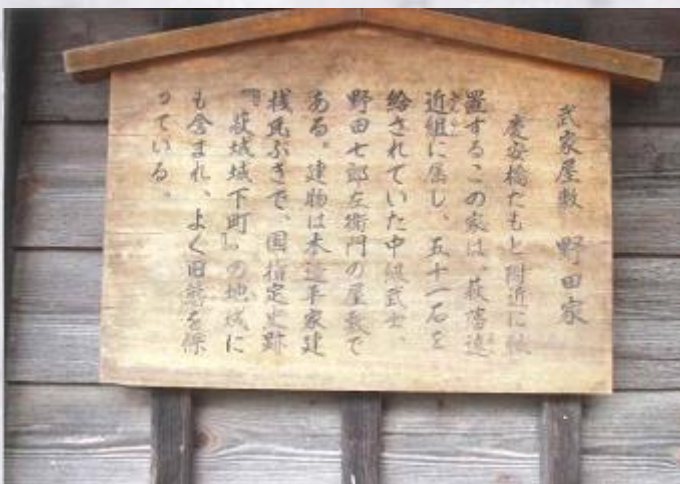 武家屋敷　野田家
慶安橋たもと附近に位
置するこの家は、萩藩遠
近組に属し、五十一石を
給されていた中級武士、
野田七郎左衛門の屋敷で
ある。建物は木造平家建
桟瓦ぶきで、国指定史跡
『萩城城下町』の地域に
も含まれ、よく旧態を保
っている。